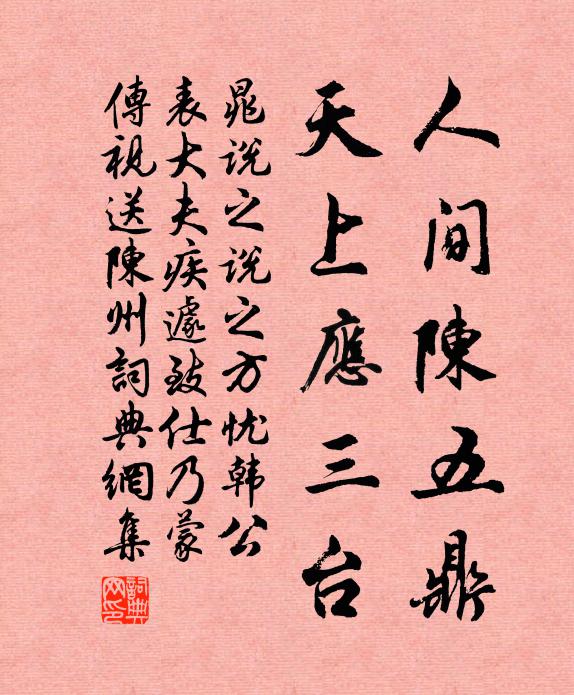 人間陳五鼎
天上應三台
晁说之说之方忧韩公
表大夫疾遽致仕乃蒙
傳視送陳州詞典網集
詞典網印